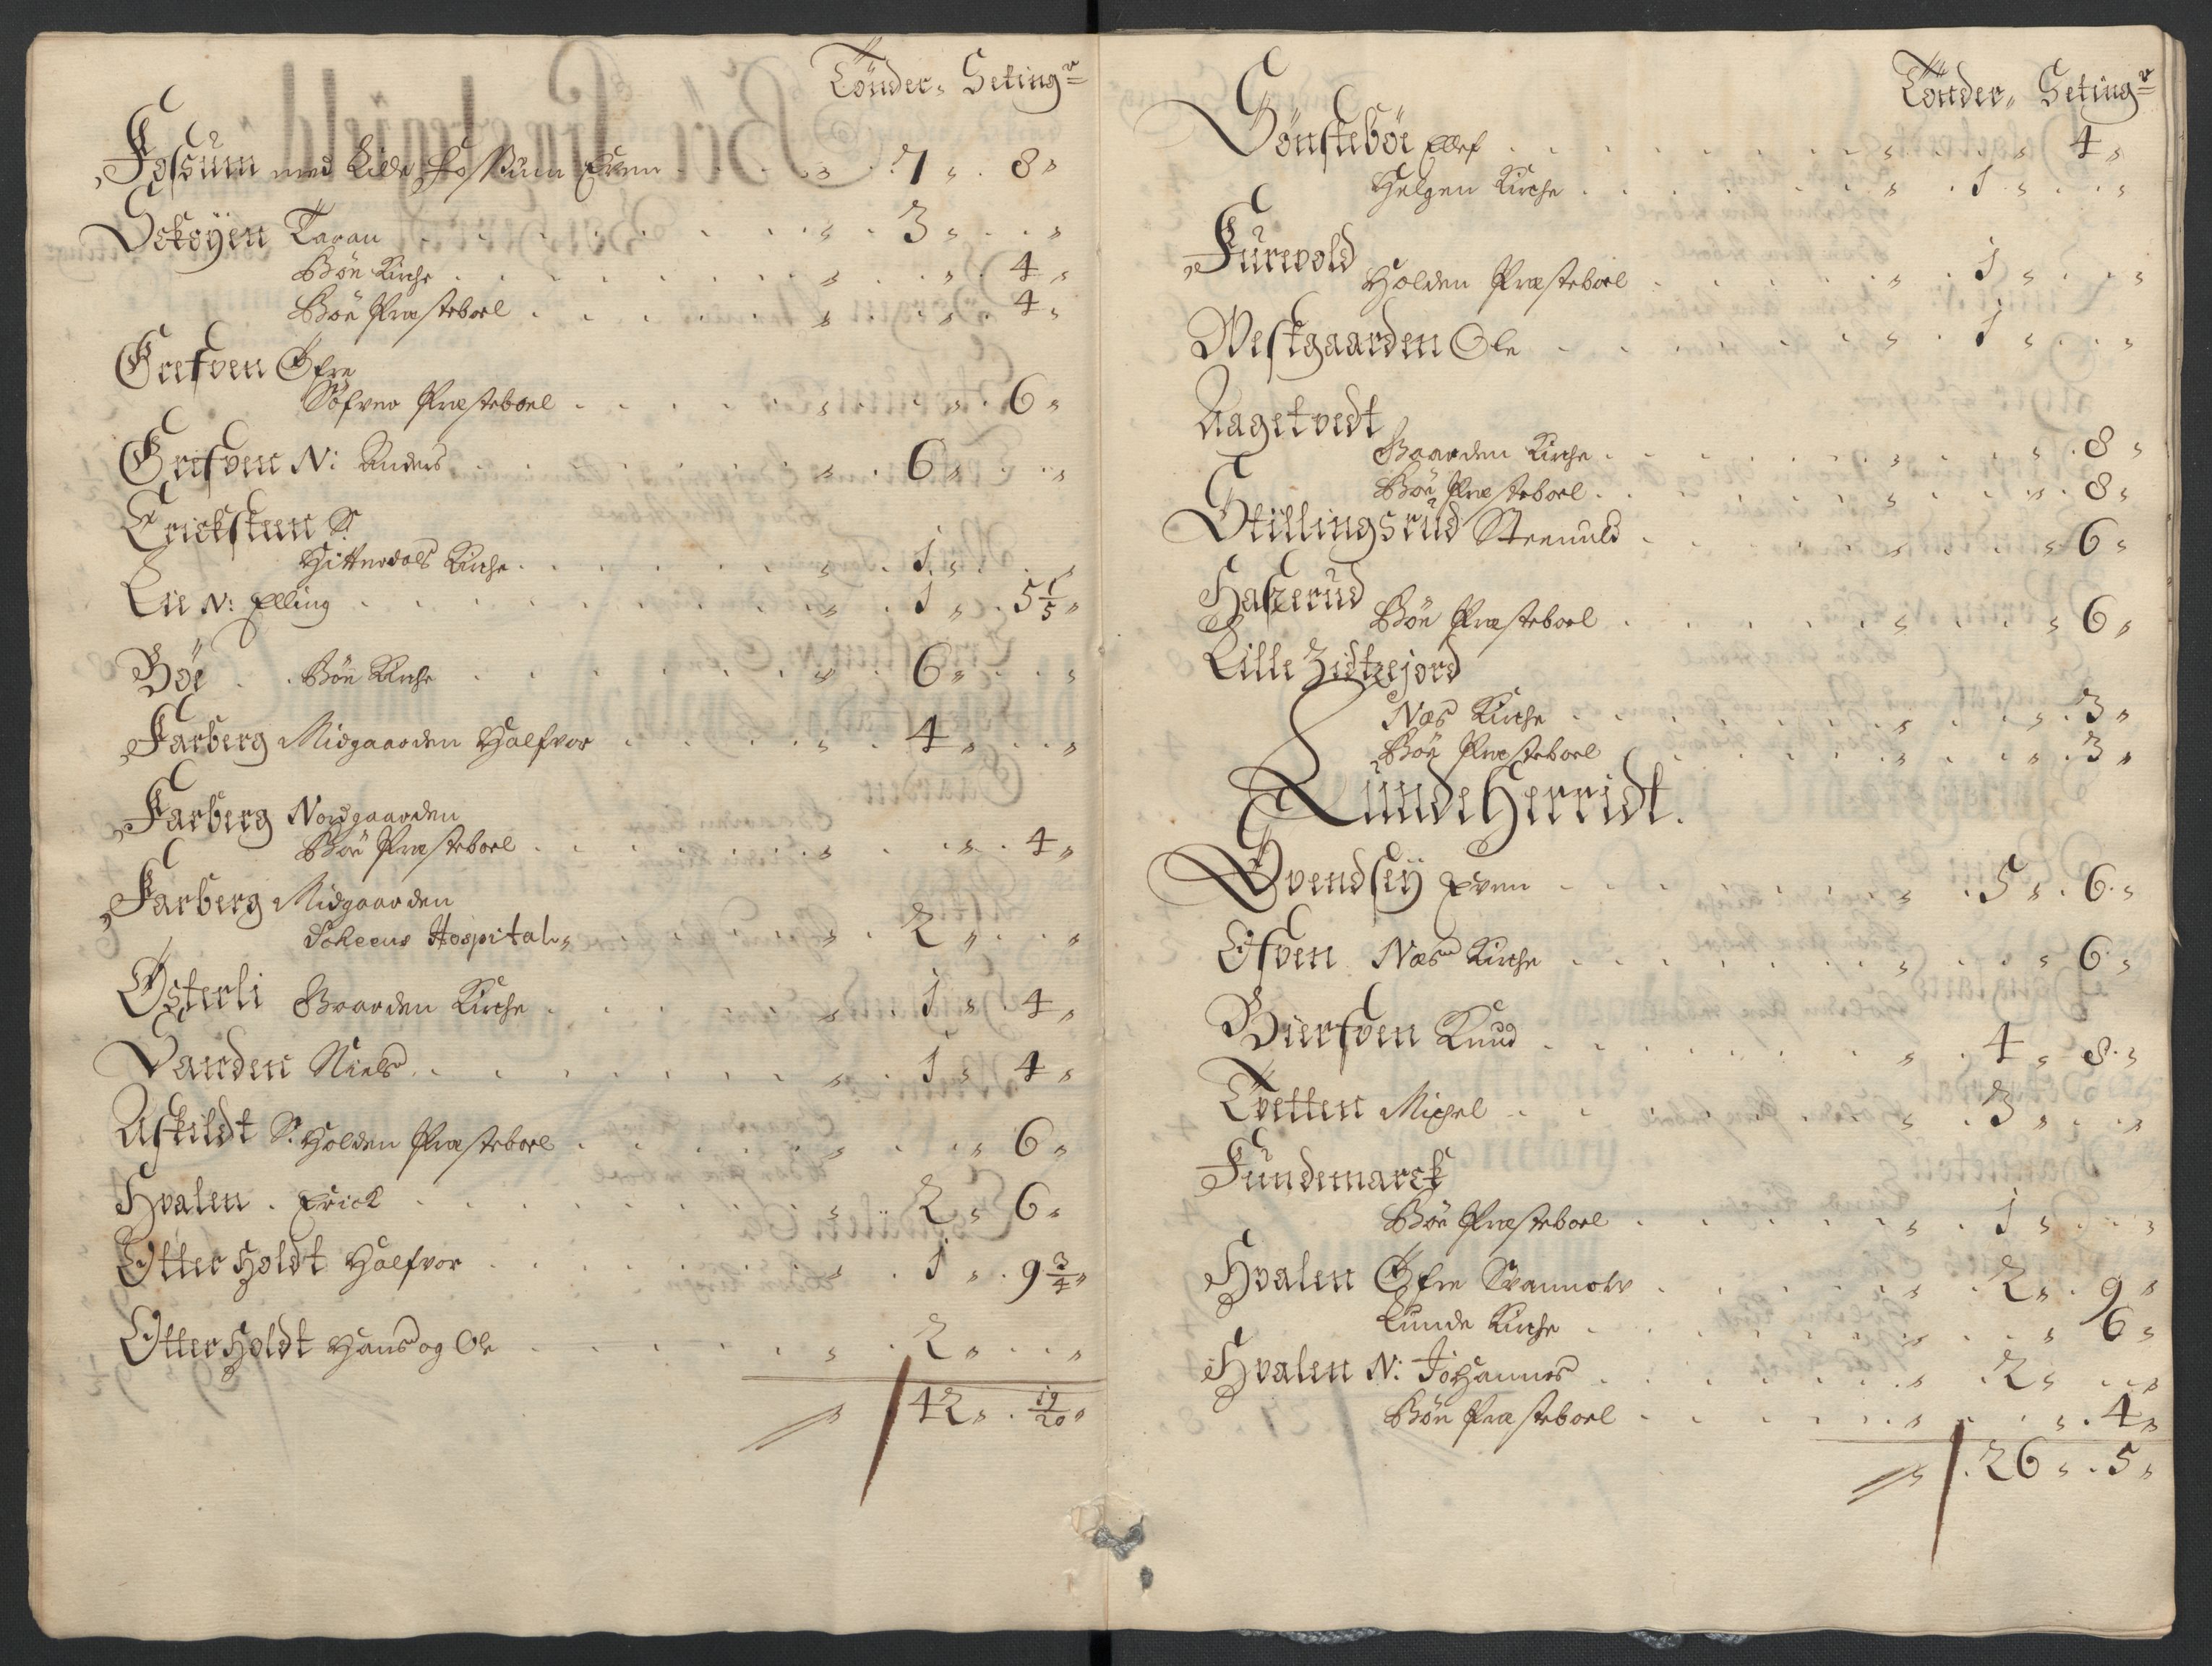 Tönder, Setingr
Fossum med Lide Fossum Even 7 8
Sckoÿen Taran 3
Böe Kirche 4
Böe Præsteboel 4
Grefven Öfre
Söfver Præsteboel 6
Grefven N: Anders 6
Ericksteen S.
Hitterdals Kirche 1
Lie N: Elling 1 5 1/5
Böe Böe Kirche 6
Farberg Midgaarden Halfvor 4
Farberg Nordgaarden
Böe Præsteboel 4
Farberg Midgaarden
Scheens Hospital 2
Österli Gaarden Kirche 1 4
Sanden Niels 1 4
Askildt S. Holden Præsteboel 6
Hvalen Erick 2 6
Otterholdt Halfvor 1 9 3/4
Otterholdt Hans og Ole 2
42 19/20
Tönder, Setingr
Sönsteböe 4
Helgen Kirche 1
Furevold
Holden Præsteboel 1
Westgaarden Ole 1
Aagetvedt
Gaarden Kirche 8
Böe Præsteboel 8
Stillingsrud 6
Haszerud
Böe Præsteboel 6
Lille Zidtzejord
Næs Kirche 3
Böe Præsteboel 3
Lunde Herridt.
Svendseÿ Even 5 6
Ofven Næs Kirche 6
Bierfven Knud 4 8
Tvetten Michel 3
Fundemarck
Böe Præsteboel 1
Hvalen Öfre 2 9
Lunde Kirche 6
Hvalen N: Johannes 2
Böe Præsteboel 4
26 5